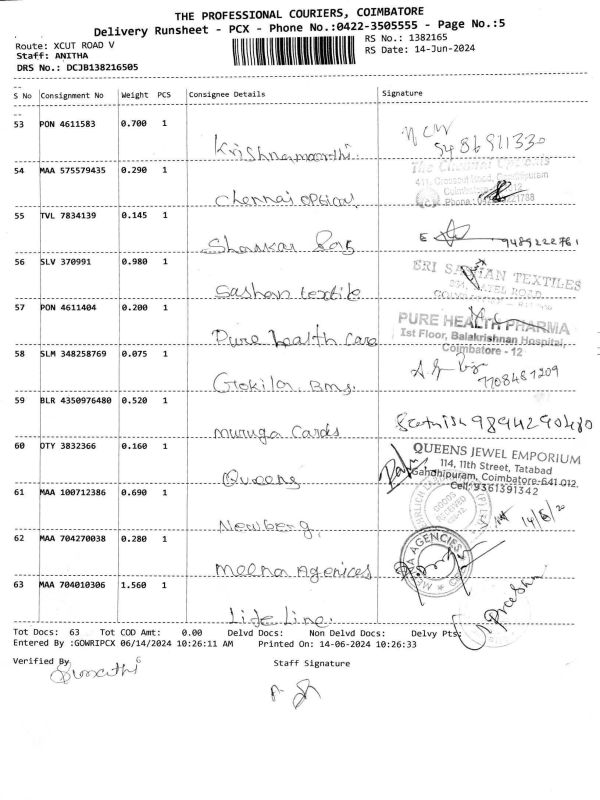 THE PROFESSIONAL COURIERS, COIMBATORE
Delivery Runsheet - PCX - Phone No.:0422-3505555 - Page No.:5
Route: XCUT ROAD V
RS No.: 1382165
Staff: ANITHA
RS Date: 14-Jun-2024
DRS No.: DCJB138216505
S No Consignment No Weight PCS Consignee Details Signature
53 PON 4611583 0.700 1
Krishnamoorthi.
54 MAA 575579435 0.290 1
Chennai optical
55 TVL 7834139 0.145 1
Shankar
9489222761
56 SLV 370991 0.980 1
Sashan textile
TEXTILES
57 PON 4611404 0.200 1
Pure health Care
PURE HEALTH PHARMA
Ist Floor, Balakrishnan Hospital,
Coimbatore - 12
58 SLM 348258769 0.075 1
Gokila. Bms.
7708481209
59 BLR 4350976480 0.520 1
muruga Cards
60 OTY 3832366 0.160 1
Queens
QUEENS JEWEL EMPORIUM
114, 11th Street, Tatabad
Gandhipuram, Coimbatore-641 012.
Cell: 9361391342
61 MAA 100712386 0.690 1
Newberg.
62 MAA 704270038 0.280 1
Meena Agenices
63 MAA 704010306 1.560 1
Life Line.
Tot Docs: 63 Tot COD Amt: 0.00 Delvd Docs: Non Delvd Docs: Delvy Pts:
Entered By :GOWRIPCX 06/14/2024 10:26:11 AM Printed On: 14-06-2024 10:26:33
Verified By
Staff Signature